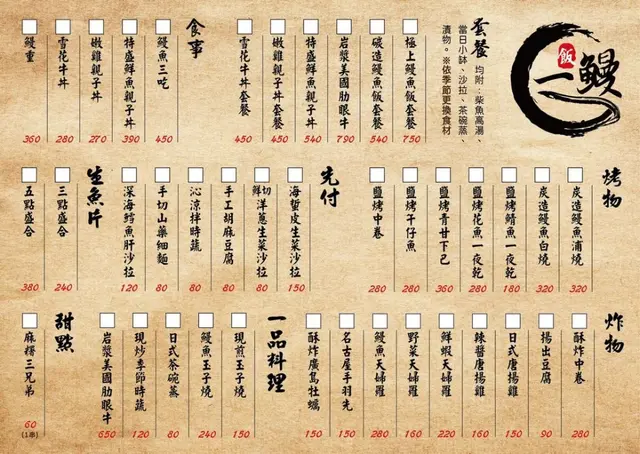 鰻
一
飯
套餐
均附：柴魚高湯、
當日小缽、沙拉、茶碗蒸、
漬物。※依季節更換食材
極上鰻魚飯套餐 750
碳造鰻魚飯套餐 540
岩漿美國肋眼牛 790
特盛鮮魚親子丼套餐 540
嫩雞親子丼套餐 450
雪花牛丼套餐 450
食事
鰻魚三吃 450
特盛鮮魚親子丼 390
嫩雞親子丼 270
雪花牛丼 280
鰻重 360
烤物
炭造鰻魚蒲燒 320
炭造鰻魚白燒 320
鹽烤鯖魚一夜乾 180
鹽烤花魚一夜乾 280
鹽烤青甘下巴 360
鹽烤午仔魚 280
鹽烤中卷 280
先付
海蜇皮生菜沙拉 150
鮮切洋蔥生菜沙拉 80
手工胡麻豆腐 80
沁涼拌時蔬 80
手切山藥細麵 80
深海鱈魚肝沙拉 120
生魚片
三點盛合 240
五點盛合 380
炸物
酥炸中卷 280
揚出豆腐 90
日式唐揚雞 150
辣醬唐揚雞 160
鮮蝦天婦羅 220
野菜天婦羅 160
鰻魚天婦羅 280
名古屋手羽先 150
酥炸廣島牡蠣 150
一品料理
現煎玉子燒 150
鰻魚玉子燒 240
日式茶碗蒸 80
現炒季節時蔬 120
岩漿美國肋眼牛 650
甜點
麻糬三兄弟 60
(1串)